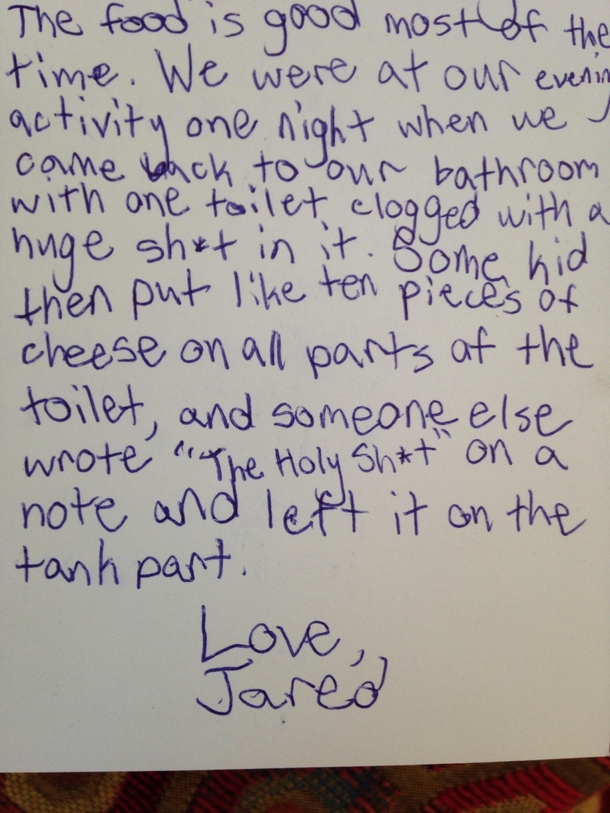 The food is good most of the
time. We were at our evenin
activity one night when we
came back to our bathroom
with one toilet clogged with a
huge sh*t in it. Some kid
then put like ten pieces of
cheese on all parts of the
toilet, and someone else
wrote "The Holy Sh*t" on a
note and left it on the
tank part.
Love,
Jared